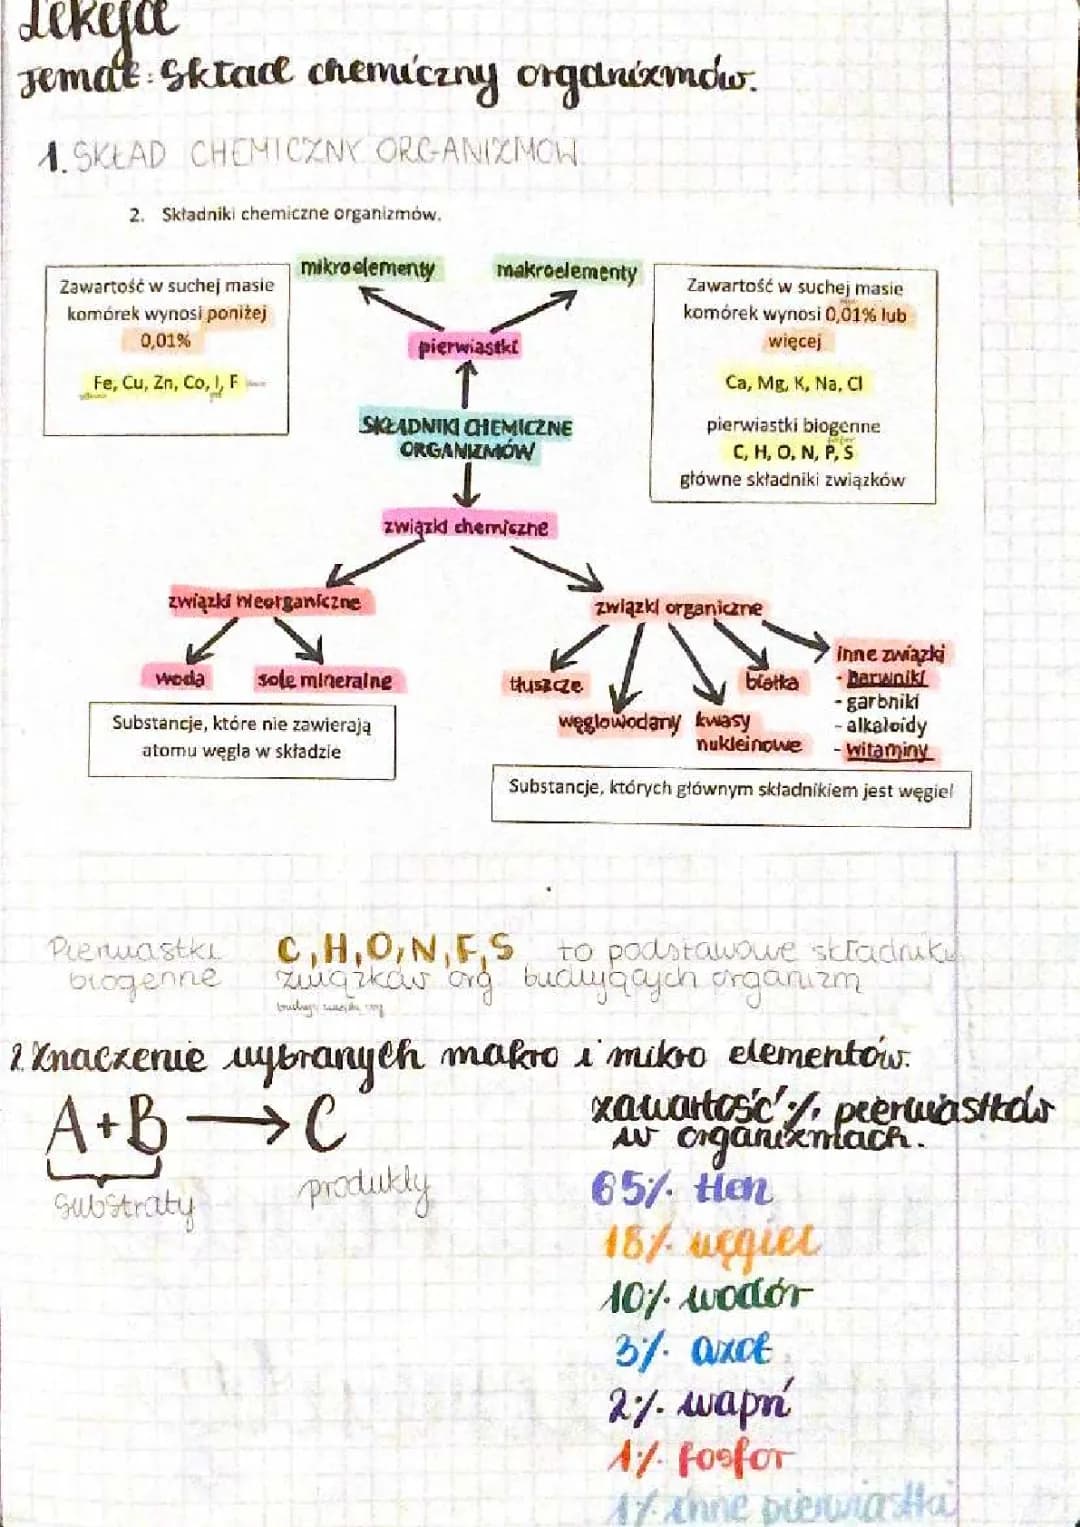 Lekcja
Temat: Skład chemiczny organizmów.
1. SKŁAD CHEMICZNY ORGANIZMÓW
2. Składniki chemiczne organizmów.
mikroelementy
makroelementy
Zawartość w suchej masie
komórek wynosi poniżej
0,01%
Fe, Cu, Zn, Co, I, F
Zawartość w suchej masie
komórek wynosi 0,01% lub
więcej
Ca, Mg, K, Na, Cl
pierwiastki biogenne
C, H, O, N, P, S
główne składniki związków
pierwiastki
SKŁADNIKI CHEMICZNE
ORGANIZMÓW
związki chemiczne
związki nieorganiczne
związki organiczne
woda
sole mineralne
Substancje, które nie zawierają
atomu węgla w składzie
tłuszcze
węglowodany
kwasy
nukleinowe
białka
inne związki
- barwniki
- garbniki
- alkaloidy
- witaminy
Substancje, których głównym składnikiem jest węgiel
Pierwiastki
biogenne
C, H, O, N, F, S to podstawowe składniki
związków org budujących organizm
2. Znaczenie wybranych makro i mikro elementów.
A + B → C
substraty
produkty
zawartość % pierwiastków
w organizmach.
65% tlen
18% węgiel
10% wodór
3% azot
2% wapń
1% fosfor
1% inne pierwiastki